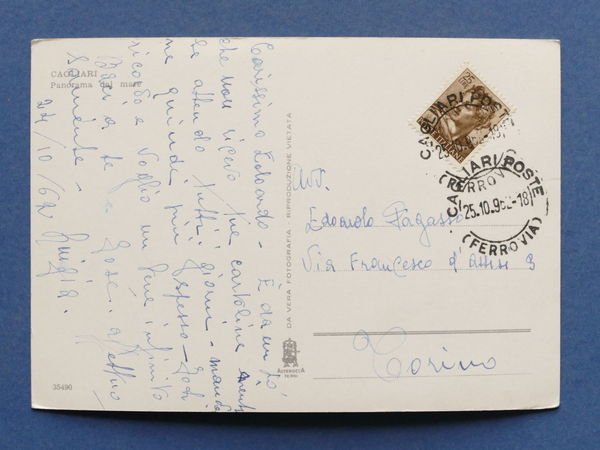 CAGLIARI
Panorama dal mare
Carissimo Edoardo - È da un pò
che non ricevo tue cartoline mentre
le attendo tutti i giorni - manda
ne quindi più spesso -
ricordo e voglio un bene infinito
Baci a te e José.
24/10/62 Luigia.
DA VERA FOTOGRAFIA - RIPRODUZIONE VIETATA
ALTEROCCA
TERNI
35490
Avv.
Edoardo Pagassi
Via Francesco d'Assisi 9
Torino
CAGLIARI POSTE
25.10.962-18
(FERROVIA)
CAGLIARI POSTE
(FERROVIA)